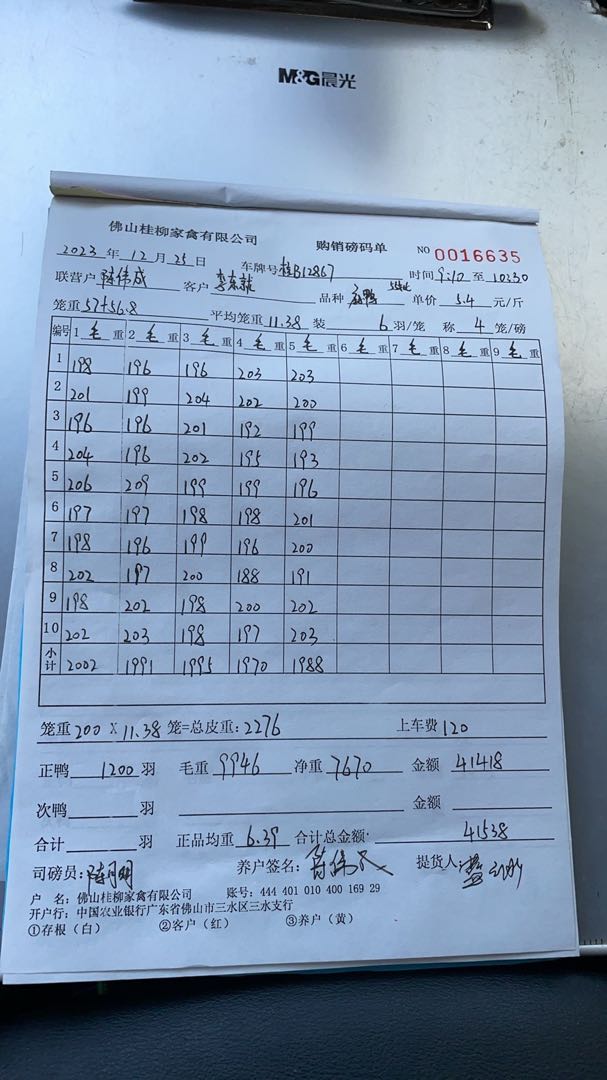 M&G晨光
佛山桂柳家禽有限公司 购销磅码单 NO 0016635
2023 年 12 月 25 日 车牌号 桂B12867 时间 9:10 至 10:30
联营户 陈伟成 客户 李东 品种 鸭 单价 5.4 元/斤
笼重 57+56.8 平均笼重 11.38 装 6 羽/笼 称 4 笼/磅
编号 1 毛 重 2 毛 重 3 毛 重 4 毛 重 5 毛 重 6 毛 重 7 毛 重 8 毛 重 9 毛 重
1 198 196 196 203 203
2 201 199 204 202 200
3 196 196 201 192 199
4 204 196 202 195 193
5 206 209 199 199 196
6 197 197 198 198 201
7 198 196 199 196 200
8 202 197 200 188 191
9 198 202 198 200 202
10 202 203 198 197 203
小计 2002 1991 1995 1970 1988
笼重 200 X 11.38 笼=总皮重: 2276 上车费 120
正鸭 1200 羽 毛重 9946 净重 7670 金额 41418
次鸭 羽 金额
合计 羽 正品均重 6.39 合计总金额 41538
司磅员: 陈明 养户签名: 陈伟成 提货人:
户 名: 佛山桂柳家禽有限公司 账号: 444 401 010 400 169 29
开户行: 中国农业银行广东省佛山市三水区三水支行
①存根（白） ②客户（红） ③养户（黄）